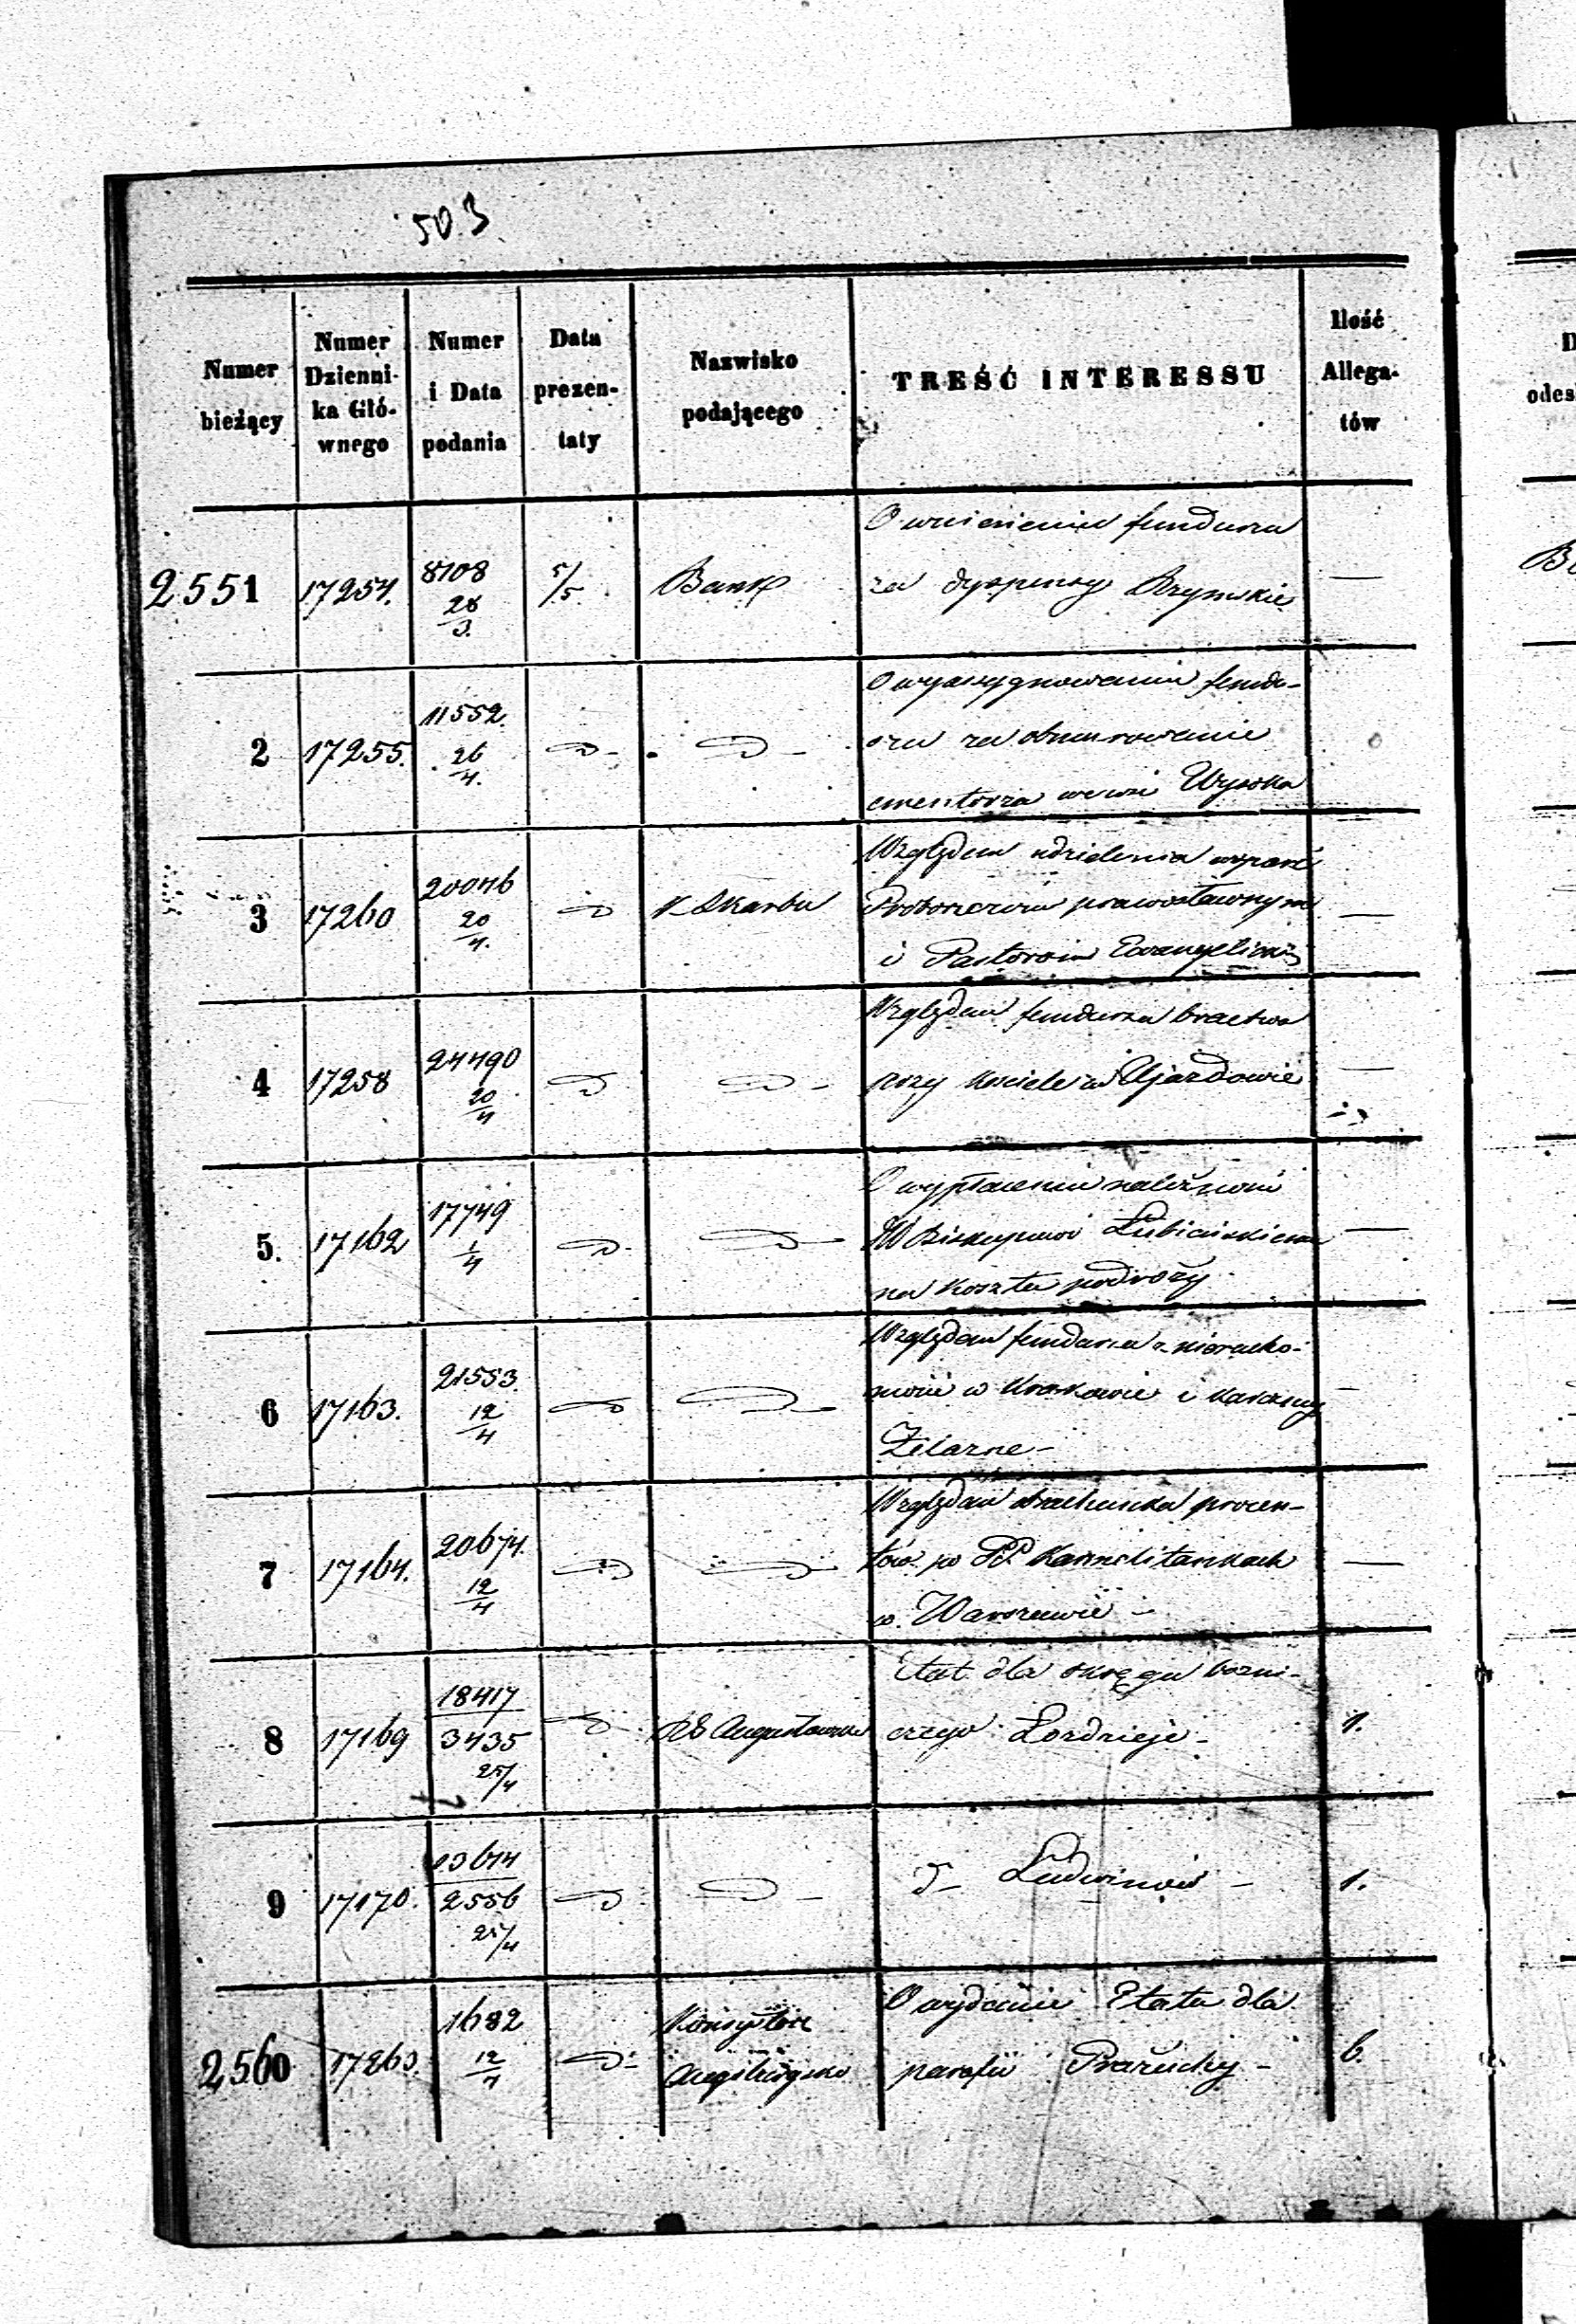 503
Numer bieżący
Numer Dzienni-ka Głó-wnego
Numer i Data podania
Data prezen-taty
Nazwisko podającego
TREŚĆ INTERESSU
Ilość Allega-tów
2551 17254. 8108 28/3. 5/5 Bank
O wniesieniu fundusza
za dyspensy Rzymskie —
2 17255. 11552. 26/4. D- D-
O wyassygnowaniu fundu-
szu za obmurowanie
cmentarza we wsi Wysoka
3 17260 20046 20/4. D K. Skarbu
Względem udzielenia wsparć
Proboszczom prawosławnym —
i Pastorom Ewangelickim
4 17258 24490 20/4 D D-
Względem fundusza bractwa
przy kościele w Ujazdowie —
5. 17162 17749 1/4 D- D-
O wypłacenie należności
Biskupowi Łubieńskiemu —
na koszta podróży
6 17163. 21553. 12/4 D D-
Względem fundusza
w Krakowie i —
7 17164. 20674. 12/4 D D-
Względem obrachunku procen-
tów po PP Karmelitankach —
w Warszawie -
8 17169 18417 3435 25/4 D RG Augustowski
Etat dla okręgu bożni-
czego Łozdzieje - 1.
9 17170. 2556 25/4 D D-
d- Ludwinów - 1.
2560 1682 12/4 D- Konsystorz
O wydanie Etatu dla
parafii - 6.